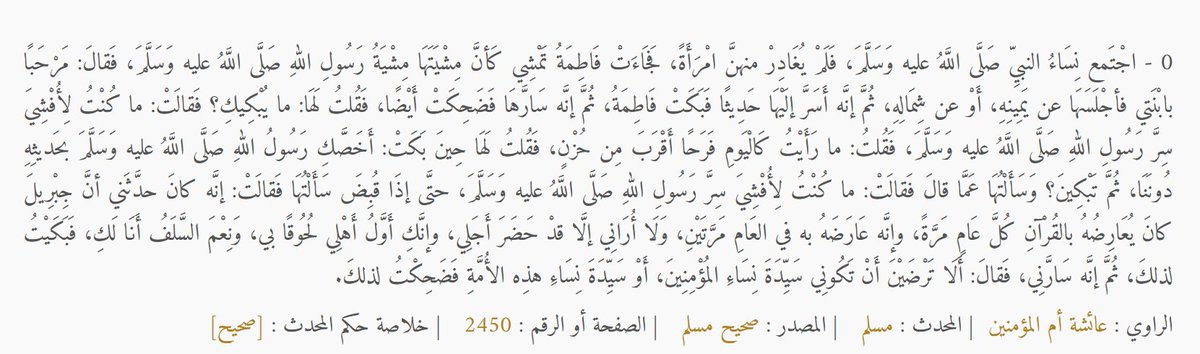 0 - اجْتَمع نِسَاءُ النبيِّ صَلَّى اللَّهُ عليه وَسَلَّمَ، فَلَمْ يُغَادِرْ منهنَّ امْرَأَةً، فَجَاءَتْ فَاطِمَةُ تَمْشِي كَأنَّ مِشْيَتَهَا مِشْيَةُ رَسُولِ اللهِ صَلَّى اللَّهُ عليه وَسَلَّمَ، فَقالَ: مَرْحَبًا
بابْنَتي فأجْلَسَهَا عن يَمِينِهِ، أَوْ عن شِمالِهِ، ثُمَّ إنَّه أَسَرَّ إلَيْهَا حَدِيثًا فَبَكَتْ فَاطِمَةُ، ثُمَّ إنَّه سَارَّهَا فَضَحِكَتْ أَيْضًا، فَقُلتُ لَهَا: ما يُبْكِيكِ؟ فَقالَتْ: ما كُنْتُ لِأُفْشِيَ
سِرَّ رَسولِ اللهِ صَلَّى اللَّهُ عليه وَسَلَّمَ، فَقُلتُ: ما رَأَيْتُ كَالْيَومِ فَرَحًا أَقْرَبَ مِن حُزْنٍ، فَقُلتُ لَهَا حِينَ بَكَتْ: أَخَصَّكِ رَسُولُ اللهِ صَلَّى اللَّهُ عليه وَسَلَّمَ بحَديثِهِ
دُونَنَا، ثُمَّ تَبْكِينَ؟ وَسَأَلْتُهَا عَمَّا قالَ فقالَتْ: ما كُنْتُ لِأُفْشِيَ سِرَّ رَسُولِ اللهِ صَلَّى اللَّهُ عليه وَسَلَّمَ، حتَّى إذَا قُبِضَ سَأَلْتُهَا فقالَتْ: إنَّه كانَ حدَّثَني أنَّ جِبْرِيلَ
كانَ يُعَارِضُهُ بالقُرْآنِ كُلَّ عَامٍ مَرَّةً، وإنَّه عَارَضَهُ به في العَامِ مَرَّتَيْنِ، وَلَا أُرَانِي إلَّا قدْ حَضَرَ أَجَلِي، وإنَّكِ أَوَّلُ أَهْلِي لُحُوقًا بي، وَنِعْمَ السَّلَفُ أَنَا لَكِ، فَبَكَيْتُ
لذلكَ، ثُمَّ إنَّه سَارَّنِي، فَقالَ: أَلَا تَرْضَيْنَ أَنْ تَكُونِي سَيِّدَةَ نِسَاءِ المُؤْمِنِينَ، أَوْ سَيِّدَةَ نِسَاءِ هذِه الأُمَّةِ فَضَحِكْتُ لذلكَ.
الراوي : عائشة أم المؤمنين | المحدث : مسلم | المصدر : صحيح مسلم | الصفحة أو الرقم : 2450 | خلاصة حكم المحدث : [صحيح]